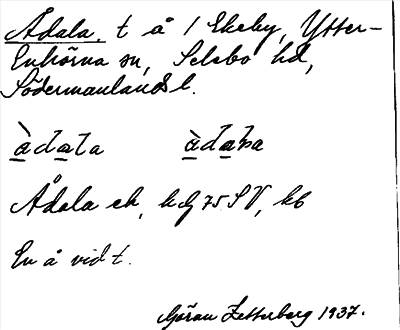 Ådala, t å 1 Ekeby, Ytter-
Enhörna sn, Selebo hd,
Södermanlands l.
àdala àdala
Ådala ek, 75 SV, kb
En å vid t.
Göran Zetterberg 1937.